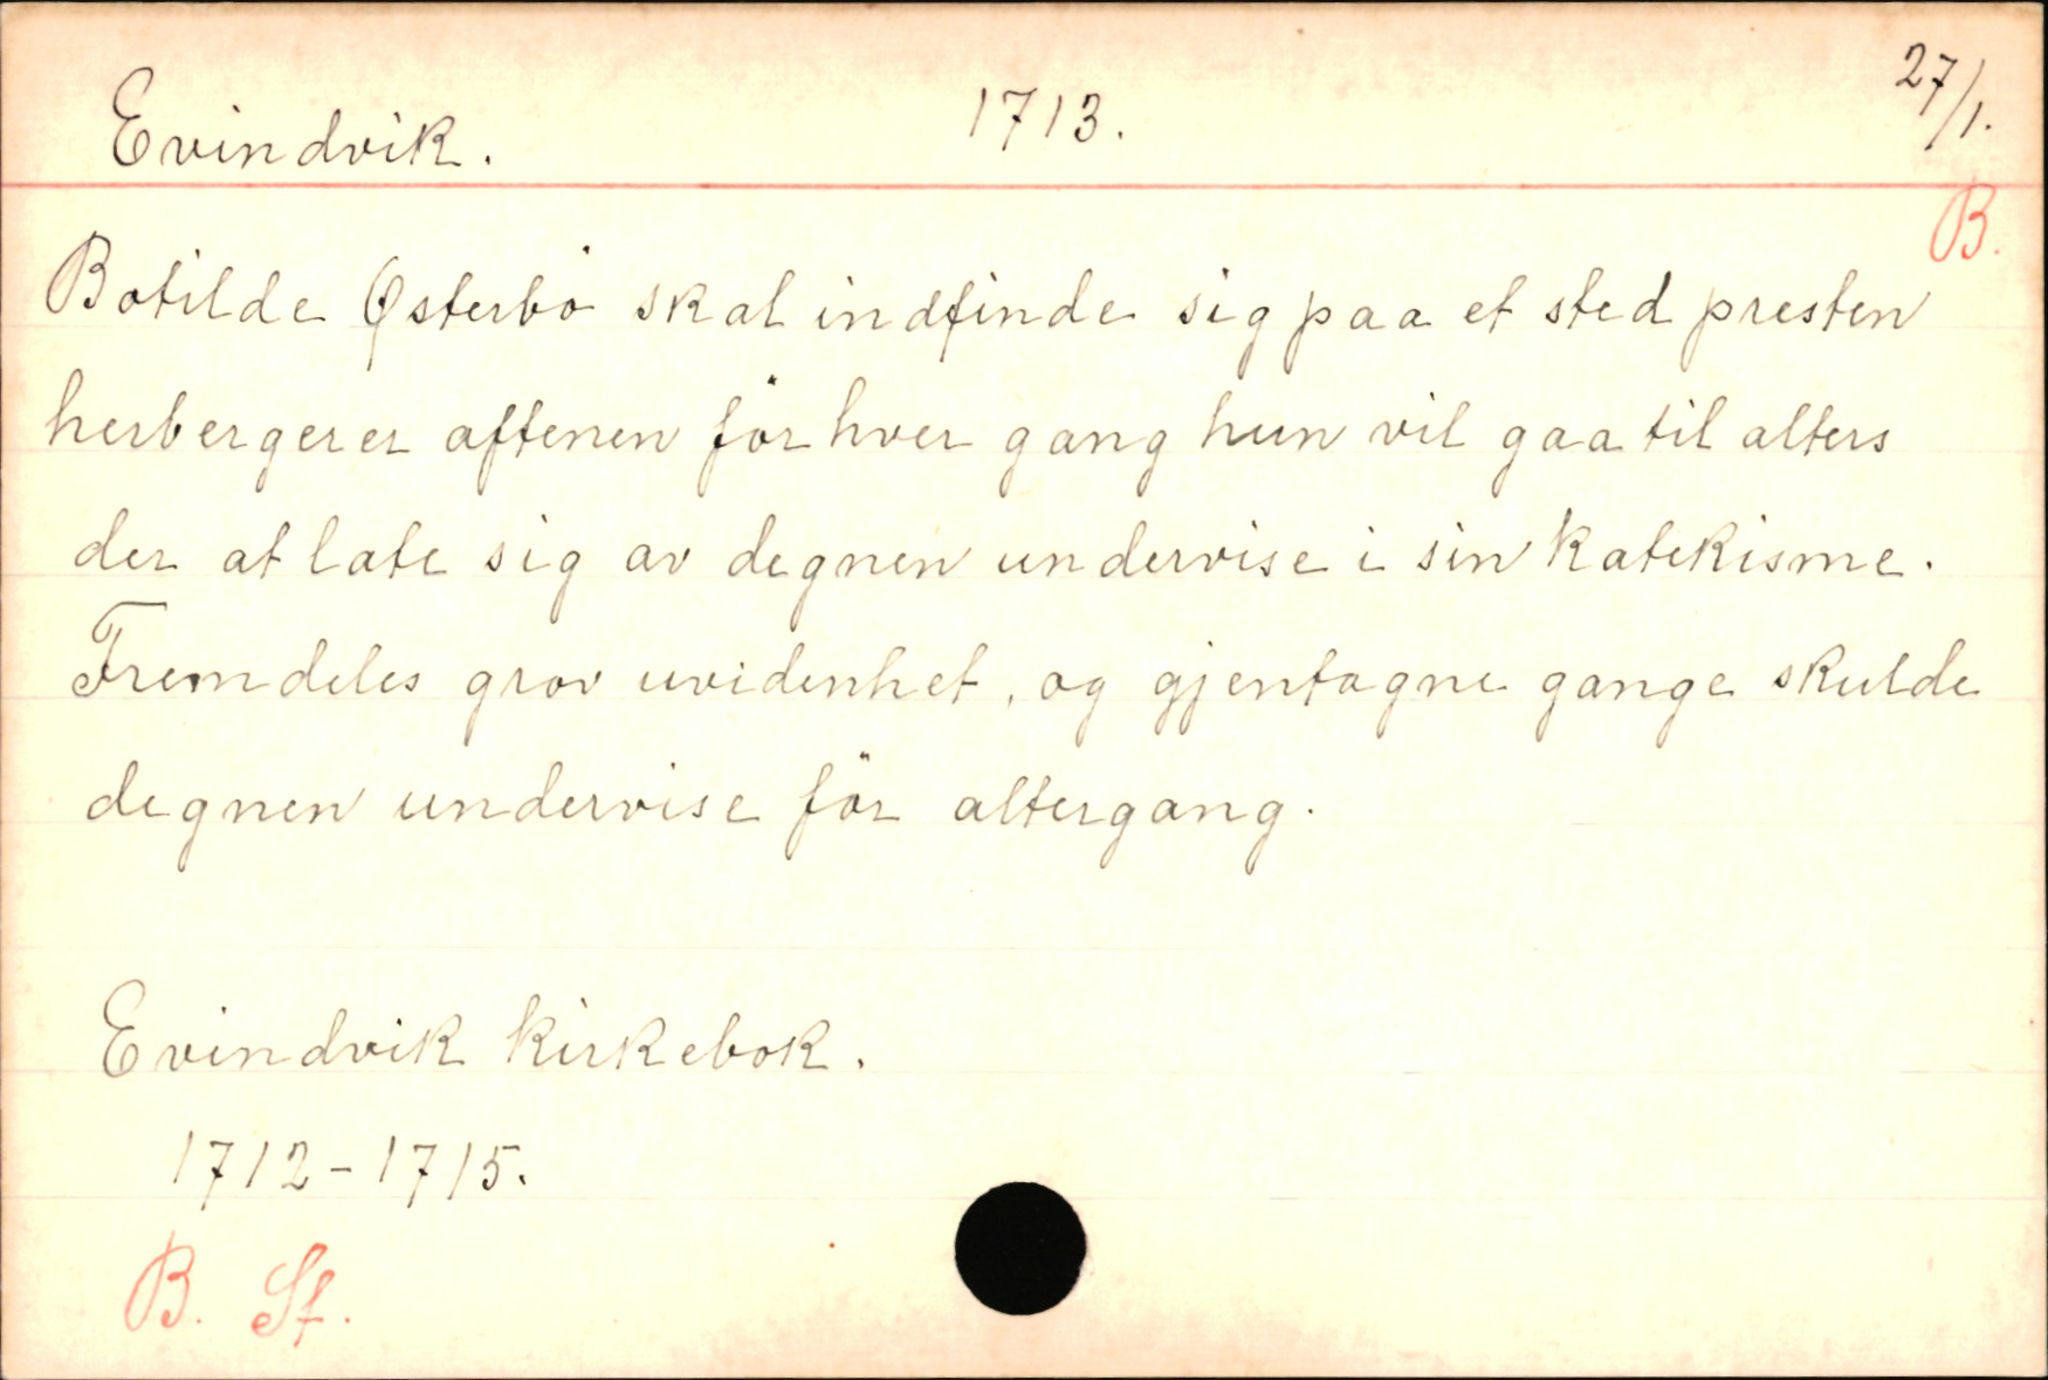 Evindvik. 1713. 27/1.
B.
Botilde Østerbö skal indfinde sig paa et sted presten
herbergerer aftenenför hver gang hun vil gaa til alters
der at late sig av degnen undervise i sin Katekisme.
Fremdeles grov uvidenhet, og gjentagne gange skulde
degnen undervise för altergang.
Evindvik Kirkebok.
1712-1715.
B. Sf.